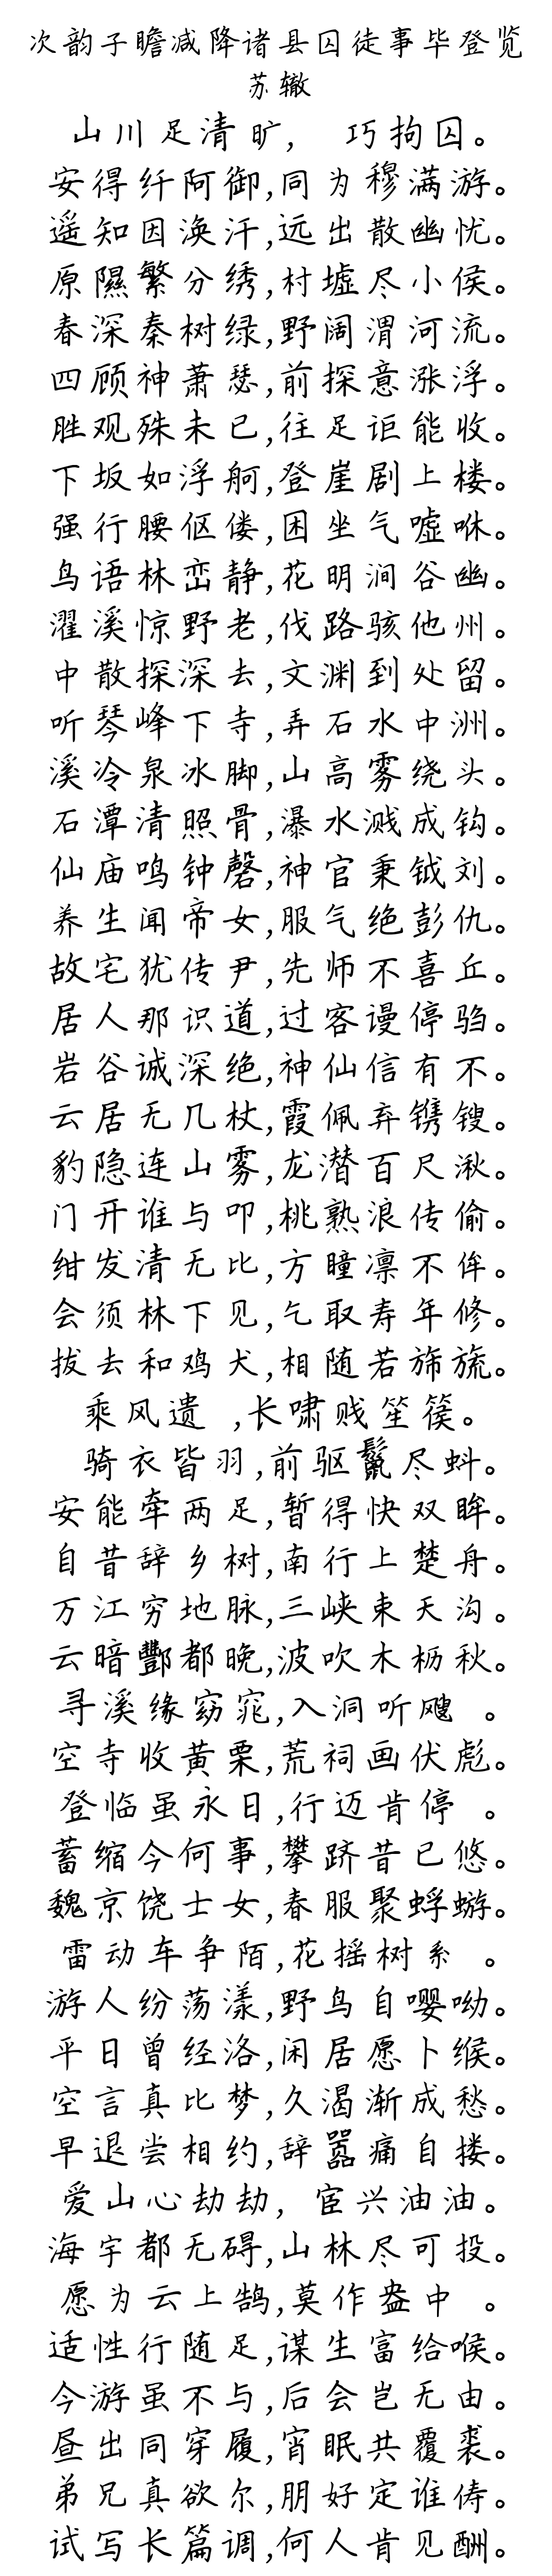 次韵子瞻减降诸县囚徒事毕登览
苏辙
山川足清旷, 巧拘囚。
安得纤阿御,同为穆满游。
遥知因涣汗,远出散幽忧。
原隰繁分绣,村墟尽小侯。
春深秦树绿,野阔渭河流。
四顾神萧瑟,前探意涨浮。
胜观殊未已,往足讵能收。
下坂如浮舸,登崖剧上楼。
强行腰伛偻,困坐气嘘咻。
鸟语林峦静,花明涧谷幽。
濯溪惊野老,伐路骇他州。
中散探深去,文渊到处留。
听琴峰下寺,弄石水中洲。
溪冷泉冰脚,山高雾绕头。
石潭清照骨,瀑水溅成钩。
仙庙鸣钟磬,神官秉钺刘。
养生闻帝女,服气绝彭仇。
故宅犹传尹,先师不喜丘。
居人那识道,过客谩停驺。
岩谷诚深绝,神仙信有不。
云居无几杖,霞佩弃镌锼。
豹隐连山雾,龙潜百尺湫。
门开谁与叩,桃熟浪传偷。
绀发清无比,方瞳凛不侔。
会须林下见,乞取寿年修。
拔去和鸡犬,相随若旆旒。
乘风遗 ,长啸贱笙篌。
骑衣皆羽,前驱鬣尽蚪。
安能牵两足,暂得快双眸。
自昔辞乡树,南行上楚舟。
万江穷地脉,三峡束天沟。
云暗酆都晚,波吹木枥秋。
寻溪缘窈窕,入洞听飕 。
空寺收黄栗,荒祠画伏彪。
登临虽永日,行迈肯停 。
蓄缩今何事,攀跻昔已悠。
魏京饶士女,春服聚蜉蝣。
雷动车争陌,花摇树系 。
游人纷荡漾,野鸟自嘤呦。
平日曾经洛,闲居愿卜缑。
空言真比梦,久渴渐成愁。
早退尝相约,辞嚣痛自搂。
爱山心劫劫, 宦兴油油。
海宇都无碍,山林尽可投。
愿为云上鹄,莫作盎中 。
适性行随足,谋生富给喉。
今游虽不与,后会岂无由。
昼出同穿履,宵眠共覆裘。
弟兄真欲尔,朋好定谁俦。
试写长篇调,何人肯见酬。